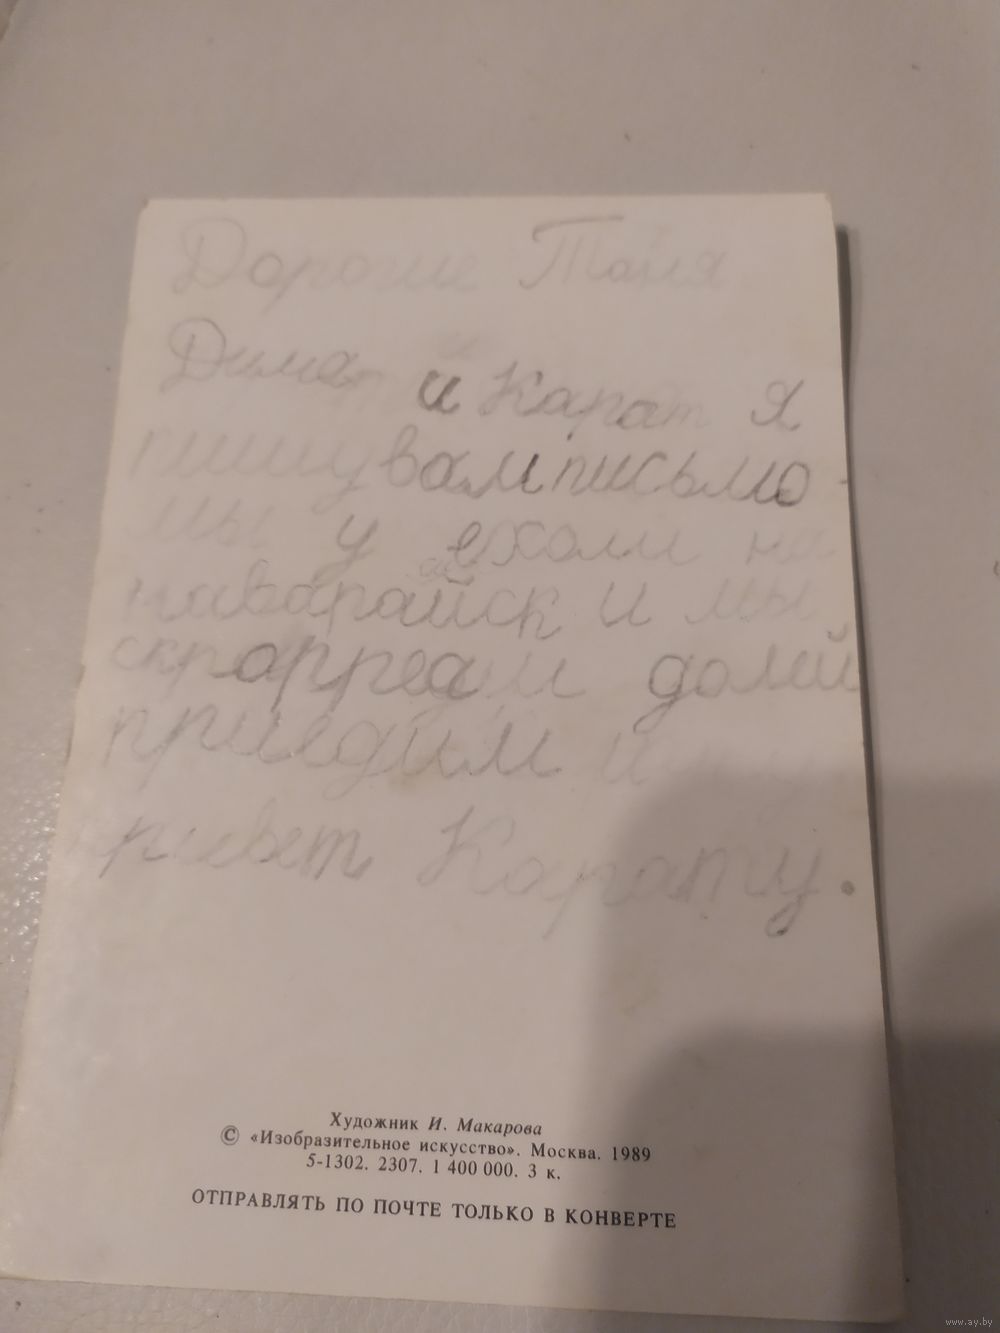 Дорогие Таня
Дима и Карат Я
пишу вам письмо
мы у ехали на
наварайск и мы
домой
приедим и
ривет Карату.
Художник И. Макарова
© «Изобразительное искусство». Москва. 1989
5-1302. 2307. 1 400 000. 3 к.
ОТПРАВЛЯТЬ ПО ПОЧТЕ ТОЛЬКО В КОНВЕРТЕ
www.ay.by